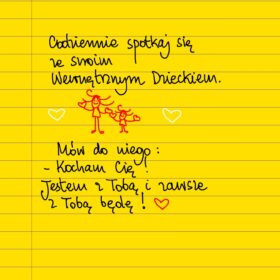 Codziennie spotkaj się
ze swoim
Wewnętrznym Dzieckiem.
Mów do niego:
- Kocham Cię!
Jestem z Tobą i zawsze
z Tobą będę!